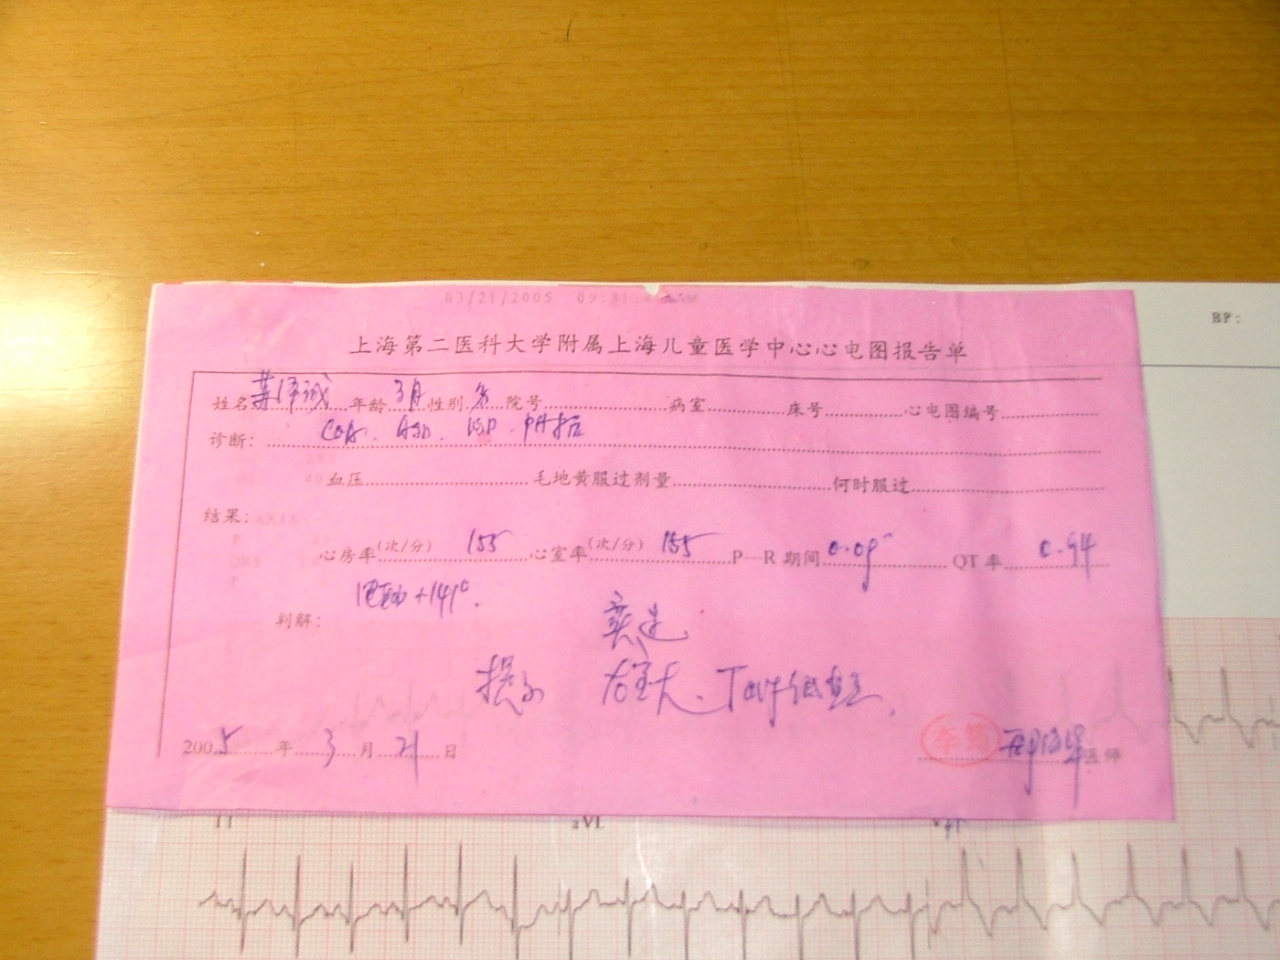 03/21/2005 09:31
BP:
上海第二医科大学附属上海儿童医学中心心电图报告单
姓名 泽诚 年龄 3月 性别 男 院号 病室 床号 心电图编号
诊断: COA. ASD. VSD. PH术后
血压 毛地黄服过剂量 何时服过
结果:
心房率(次/分) 155 心室率(次/分) 155 P—R期间 0.09" QT率 0.94
电轴+141°.
判解: 窦速
提示 右室大、TavF低直立.
2005年3月21日
医师
aVL